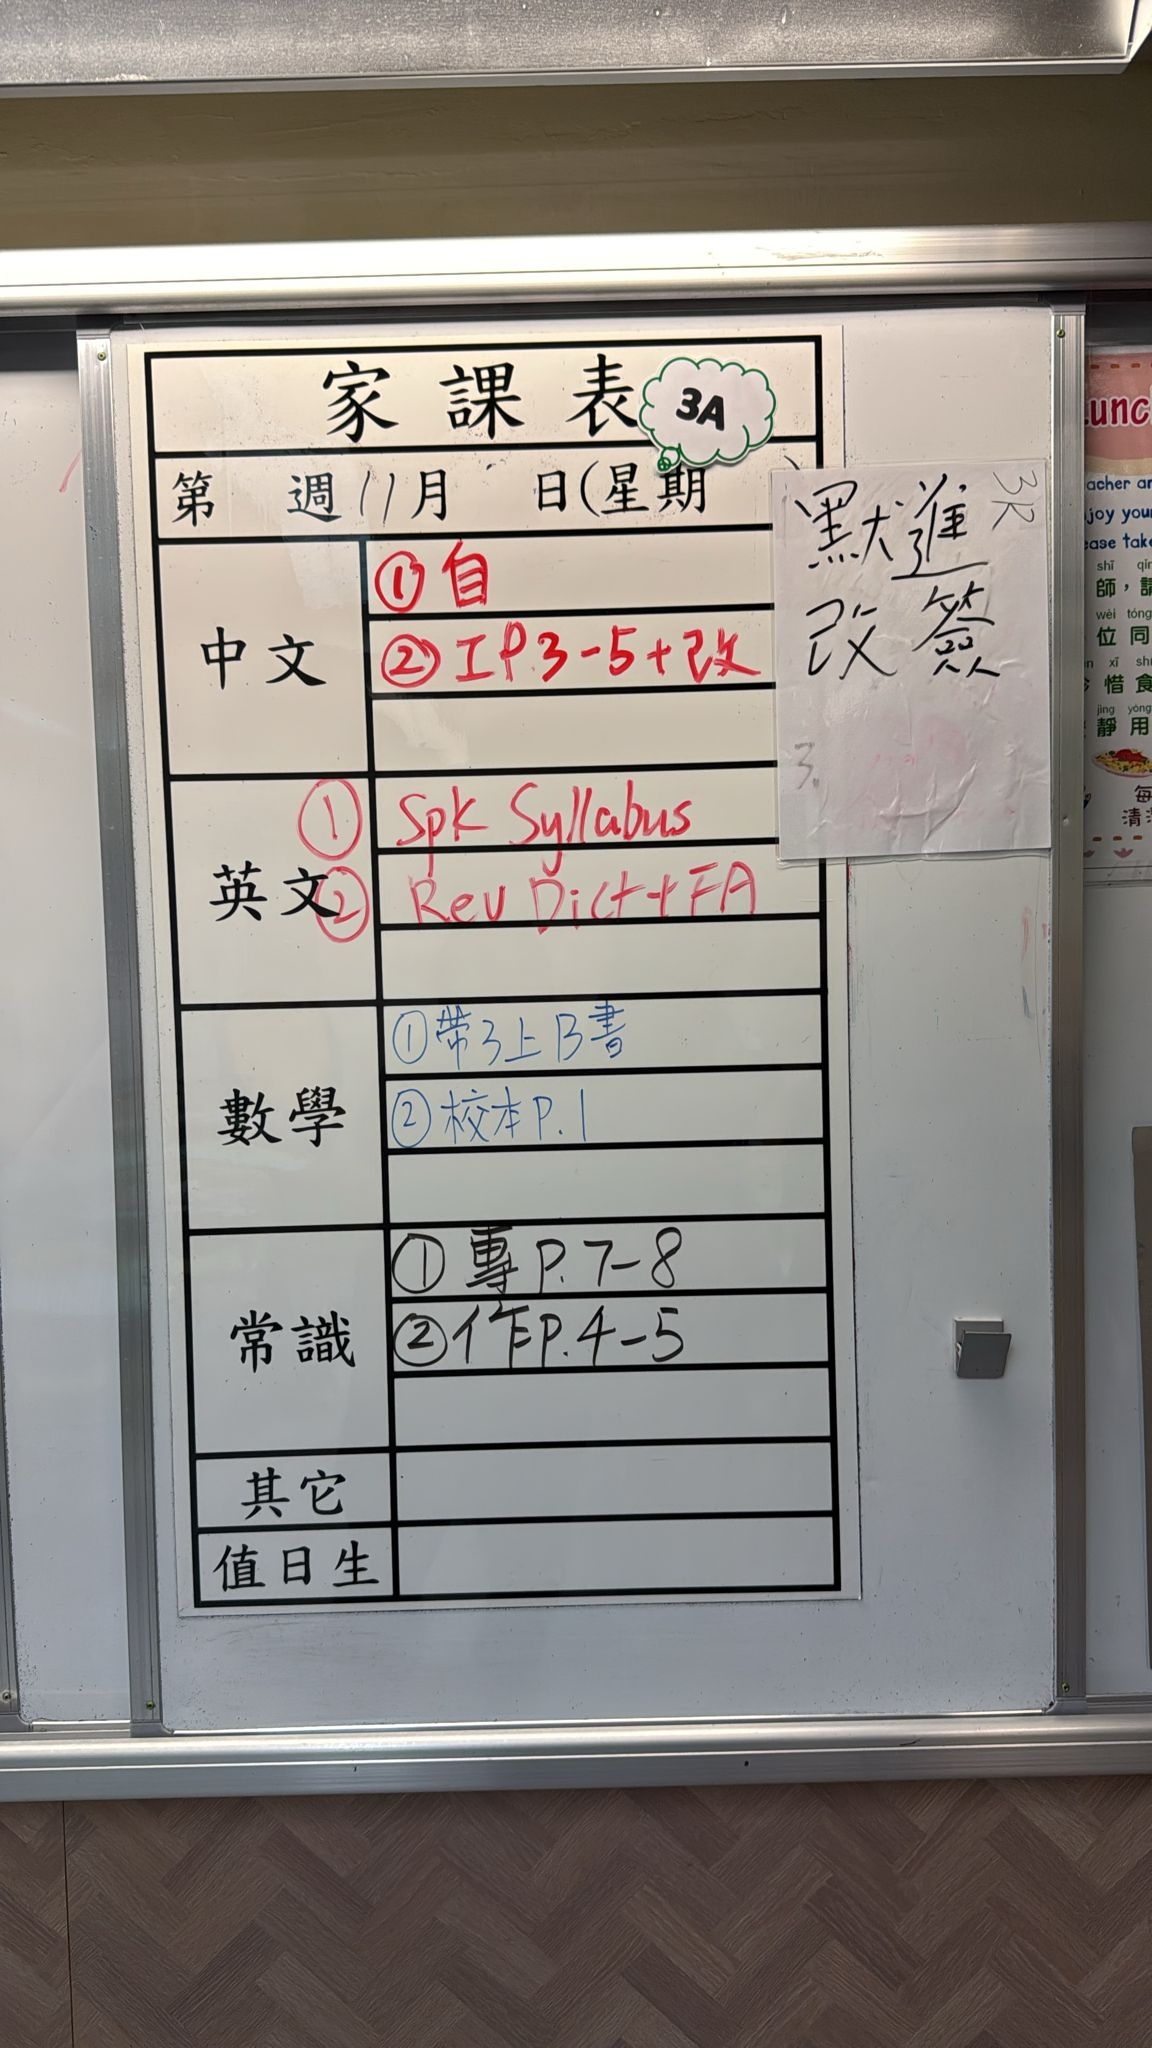 家課表
3A
第 週 11月 日(星期 )
中文
①自
②工P.3-5+改
英文
① Spk Syllabus
② Rev Dict+FA
數學
①帶3上B書
②校本P.1
常識
① 專P.7-8
②作P.4-5
其它
值日生
3R
默進
改簽
3.
師，
位同
惜食
靜用